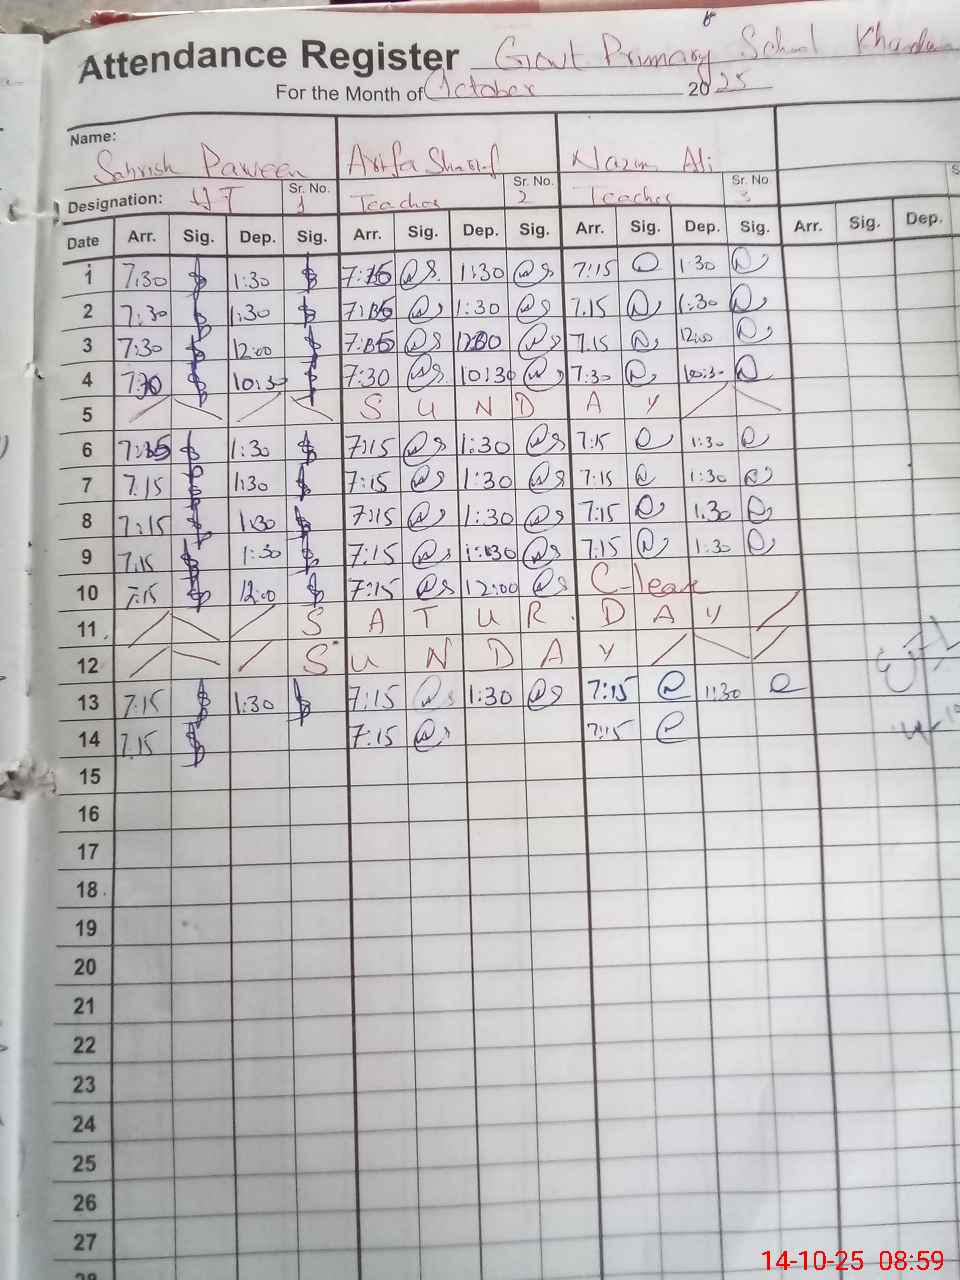 Attendance Register Govt Primary School
For the Month of October 2025
Name: Sahrish Parveen Arifa Sharif Nazim Ali
Designation: HT Sr. No. 1 Teacher Sr. No. 2 Teacher Sr. No. 3
Date Arr. Sig. Dep. Sig. Arr. Sig. Dep. Sig. Arr. Sig. Dep. Sig. Arr. Sig. Dep.
1 7:30 1:30 1:30 7:15 1:30
2 7:30 1:30 1:30 7.15 1:30
3 7:30 12:00 7.15 12:00
4 10:30 7:30 10:30 7:30 10:30
5 S U N D A Y
6 1:30 7:15 1:30 7:15 1:30
7 7.15 1:30 7:15 1:30 7:15 1:30
8 7:15 1:30 7:15 1:30 7:15 1:30
9 7.15 1:30 7:15 7:15 1:30
10 7:15 12:00 7:15 12:00 C-leave
11 S A T U R D A Y
12 S U N D A Y
13 7:15 1:30 7:15 1:30 7:15 1:30
14 7.15 7:15 7:15
15
16
17
18
19
20
21
22
23
24
25
26
27
28
14-10-25 08:59